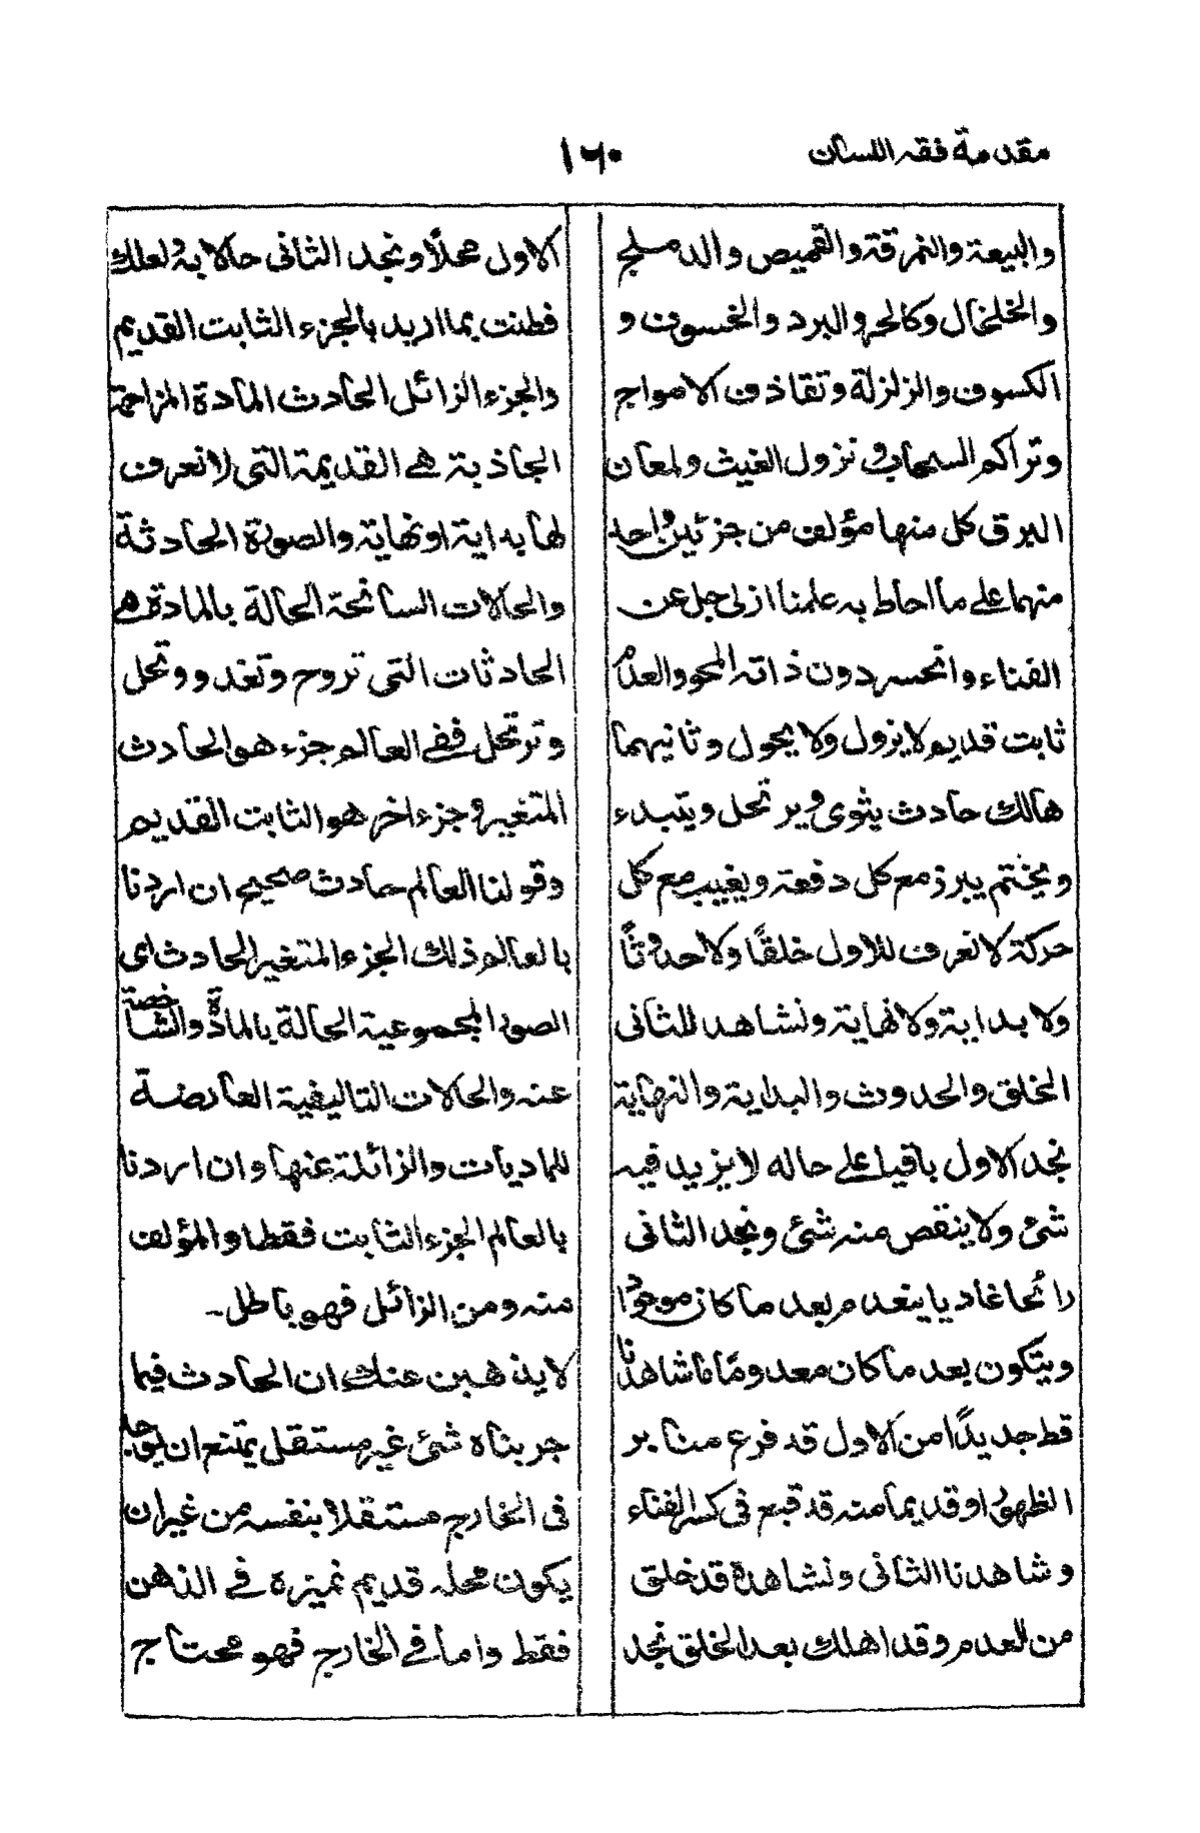 مقدمة فقه اللسان
١٦٠
والبيعة والنمرقة والقميص والدملج
والخلخال وكالحر والبرد والخسوف و
الكسوف والزلزلة وتقاذف الامواج
وتراكم السحاب ونزول الغيث ولمعان
البرق كل منها مؤلف من جزئين واحد
منهما على ما احاط به علمنا ازلى جل عن
الفناء وانحسر دون ذاته المحو والعدم
ثابت قديم لا يزول ولا يحول وثانيهما
هالك حادث يثوى ويرتحل ويتبدء
ويختم يبرز مع كل دفعة ويغيب مع كل
حركة لا نعرف للاول خلقًا ولا حدوثًا
ولا بداية ولا نهاية ونشاهد للثانى
الخلق والحدوث والبداية والنهاية
نجد الاول باقيا على حاله لا يزيد فيه
شئ ولا ينقص منه شئ ونجد الثانى
رائحا غاديا ينعدم بعد ما كان موجودا
ويتكون بعد ما كان معدومًا ما شاهدنا
قط جديدًا من الاول قد فرع منابر
الظهور او قديما منه قد قبع فى كسر الفناء
وشاهدنا الثانى ونشاهده قد خلق
من العدم وقد اهلك بعد الخلق نجد
الاول محلًا ونجد الثانى حالا به ولعلك
فطنت بما اريد بالجزء الثابت القديم
والجزء الزائل الحادث المادة المزاحمة
الجاذبة هى القديمة التى لا نعرف
لها بداية او نهاية والصورة الحادثة
والحالات السانحة الحالة بالمادة هى
الحادثات التى تروح وتغدو وتحل
وترتحل ففى العالم جزء هو الحادث
المتغير وجزء اخر هو الثابت القديم
وقولنا العالم حادث صحيح ان اردنا
بالعالم ذلك الجزء المتغير الحادث اى
الصور المجموعية الحالة بالمادة والشاخصة
عنه والحالات التاليفية العارضة
للماديات والزائلة عنها وان اردنا
بالعالم الجزء الثابت فقط او المؤلف
منه ومن الزائل فهو باطل۔
لا يذهبن عنك ان الحادث فيما
جربناه شئ غير مستقل يمتنع ان يوجد
فى الخارج مستقلا بنفسه من غير ان
يكون محله قديم نميزه فى الذهن
فقط واما فى الخارج فهو محتاج